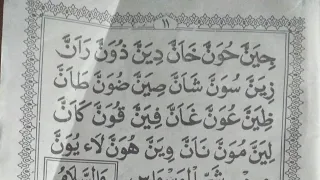 ١١
جِيَنَّ حُوَنَّ خَانَّ دِيَنَّ ذُوَنَّ رَانَّ
زِيَنَّ سُوَنَّ شَانَّ صِيَنَّ ضُوَنَّ طَانَّ
ظِيَنَّ عُوَنَّ غَانَّ فِيَنَّ قُوَنَّ كَانَّ
لِيَنَّ مُوَنَّ نَانَّ وِيَنَّ هُوَنَّ لَاء يُوَنَّ